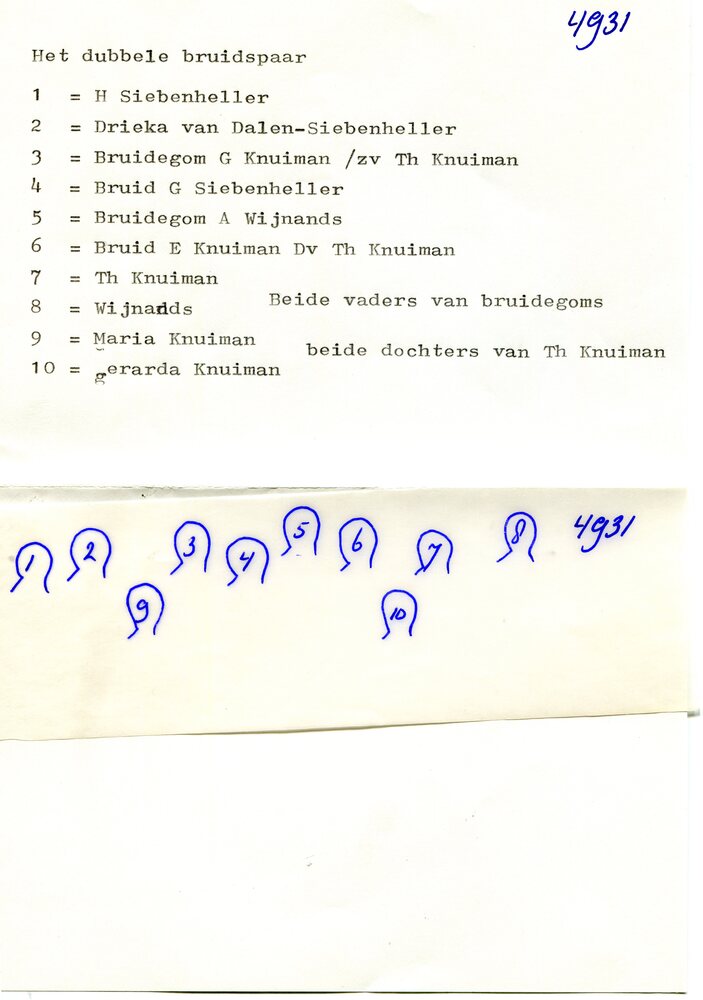 4931
Het dubbele bruidspaar
1 = H Siebenheller
2 = Drieka van Dalen-Siebenheller
3 = Bruidegom G Knuiman /zv Th Knuiman
4 = Bruid G Siebenheller
5 = Bruidegom A Wijnands
6 = Bruid E Knuiman Dv Th Knuiman
7 = Th Knuiman
8 = Wijnands Beide vaders van bruidegoms
9 = Maria Knuiman
beide dochters van Th Knuiman
10 = gerarda Knuiman
1 2 3 4 5 6 7 8 4931
9 10